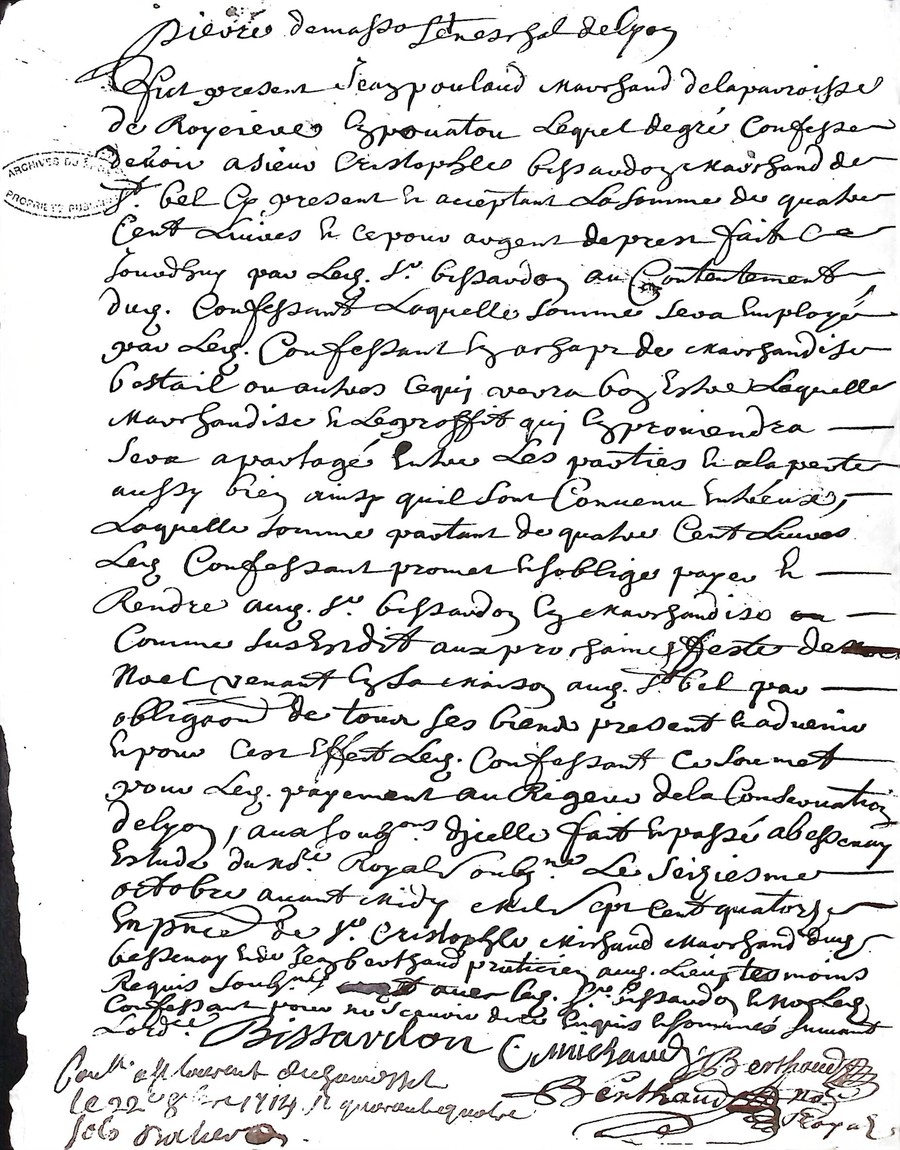 pierre demasso seneschal delyon
fut present Jean poulaud Marchand delaparoisse
de Royereves En pouatou Lequel degré Confesse
devoir a sieur Cristophle bissardon Marchand de
St. bel Cy present Et acceptant La Somme de quatre
Cent Livres Et ce pour argent deprest fait Ce
Jourdhuy par Led. Sr. bissardon au Contentement
dud. Confessant Laquelle Somme Sera Employé
par Led. Confessant En achapt de Marchandise
bestail ou autres Cequi verra bon Estre Laquelle
Marchandise Et Leproffit qui En proviendra
Sera apartagé Entre Les parties Et alaperte
aussy bien ainsy quil Sont Convenu Entreeux,
Laquelle Somme partant de quatre Cent Livres
Led Confessant promet Et soblige payer Et
Rendre aud. Sr. bissardon En Marchandise ou
Comme susEndit aux prochaines ffeste de
Noel venant En Sa Maison aud. St bel par
obligaon de tous Ses biens present Et advenir
Et pour Cest Effect Led. Confessant Ce Soumet
pour Led. payement au Rigeur dela Conservation
delyon, aux Soubzons dicelle fait Et passé abessenay
Estude du nore Royal Soubzne Le Seiziesme
octobre avant Midy Mil Sept Cent quatorze
En pnce de Sr. Cristophle Michaud Marchand dud
bessenay Et de Jean berthaud praticien aud. Lieu, tesmoins
Requis Soubznes avec Led. Sr. bissardon Et Non Led
Confessant pour ne scavoir de ce Enquis Et Sommés Suivant
Lordce
Bissardon CMichaud Berthaud
Berthaud no Royal
Conlle
le 22e 8bre 1714 R quarantequatre
sols
ARCHIVES DU
PROPRIETE PUBLIQUE